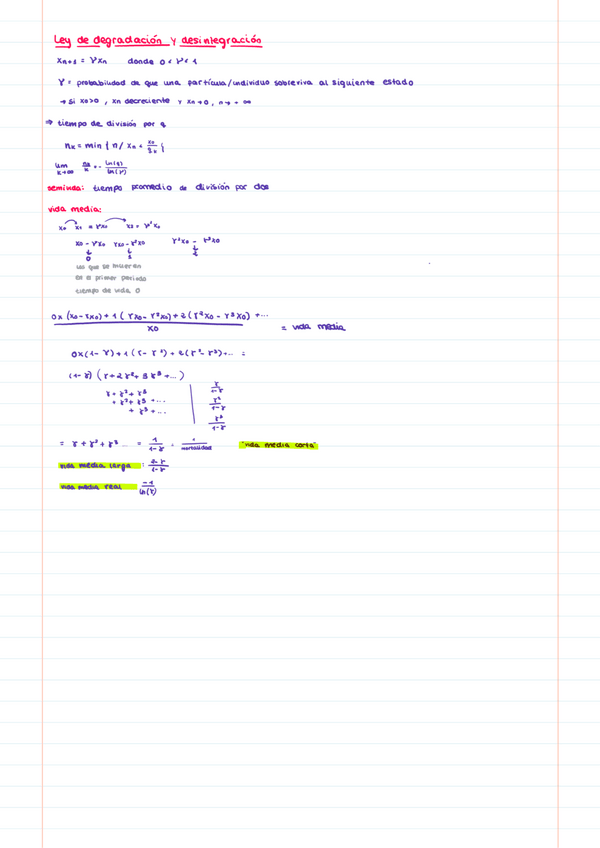 Ley de degradación y desintegración
xn+1 = γxn donde 0 < γ < 1
γ = probabilidad de que una partícula/individuo sobreviva al siguiente estado
→ Si x0>0, xn decreciente y xn→0, n→+∞
⇒ tiempo de división por q
nk = min { n / xn <
lim k→∞ nk/k = - ln(q)/ln(γ)
semivida: tiempo promedio de división por dos
vida media:
x0 x1 = γx0 x2 = γ²x0
x0 - γx0 γx0 - γ²x0 γ²x0 - γ³x0
0 1 2
los que se mueren
en el primer periodo
tiempo de vida 0
0x (x0-γx0) + 1(γx0-γ²x0) + 2(γ²x0-γ³x0) +... / x0 = vida media
0x(1-γ) + 1(γ-γ²) + 2(γ²-γ³)+... =
(1-γ) (γ+2γ²+3γ³+...)
γ+γ²+γ³ γ/1-γ
+γ²+γ³+... γ²/1-γ
+γ³+... γ³/1-γ
= γ+γ²+γ³... = 1/1-γ = 1/mortalidad "vida media corta"
vida media larga : 2-γ/1-γ
vida media real -1/ln(γ)